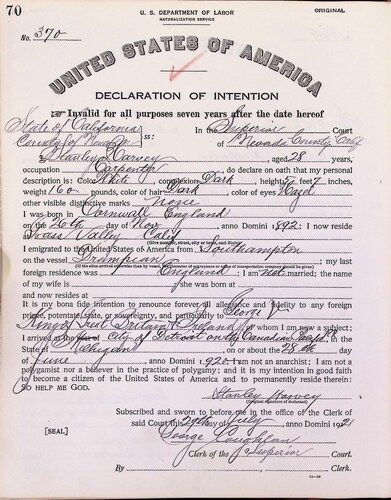 70
U. S. DEPARTMENT OF LABOR
NATURALIZATION SERVICE
ORIGINAL
No. 370
UNITED STATES OF AMERICA
DECLARATION OF INTENTION
Invalid for all purposes seven years after the date hereof
State of California
County of Nevada ss: In the Superior Court
of Nevada County Calif
I, Stanley Harvey, aged 28 years,
occupation Carpenter, do declare on oath that my personal
description is: Color White, complexion Dark, height 5 feet 7 inches,
weight 160 pounds, color of hair Dark, color of eyes Hazel
other visible distinctive marks None
I was born in Cornwall England
on the 26th day of Nov, anno Domini 1892; I now reside
at Grass Valley Calif
(Give number, street, city or town, and State.)
I emigrated to the United States of America from Southampton
on the vessel Grampian; my last
foreign residence was England; I am not married; the name
of my wife is; she was born at
and now resides at
It is my bona fide intention to renounce forever all allegiance and fidelity to any foreign
prince, potentate, state, or sovereignty, and particularly to George V
King of Great Britain & Ireland, of whom I am now a subject;
I arrived at the City of Detroit on the Canadian Pacific, in the
State of Michigan, on or about the 28th day
of June, anno Domini 192; I am not an anarchist; I am not a
polygamist nor a believer in the practice of polygamy; and it is my intention in good faith
to become a citizen of the United States of America and to permanently reside therein:
SO HELP ME GOD.
Stanley Harvey
(Original signature of declarant)
Subscribed and sworn to before me in the office of the Clerk of
said Court this 29th day of July, anno Domini 1921
[SEAL]
George Coughlan
Clerk of the Superior Court.
By, Clerk.